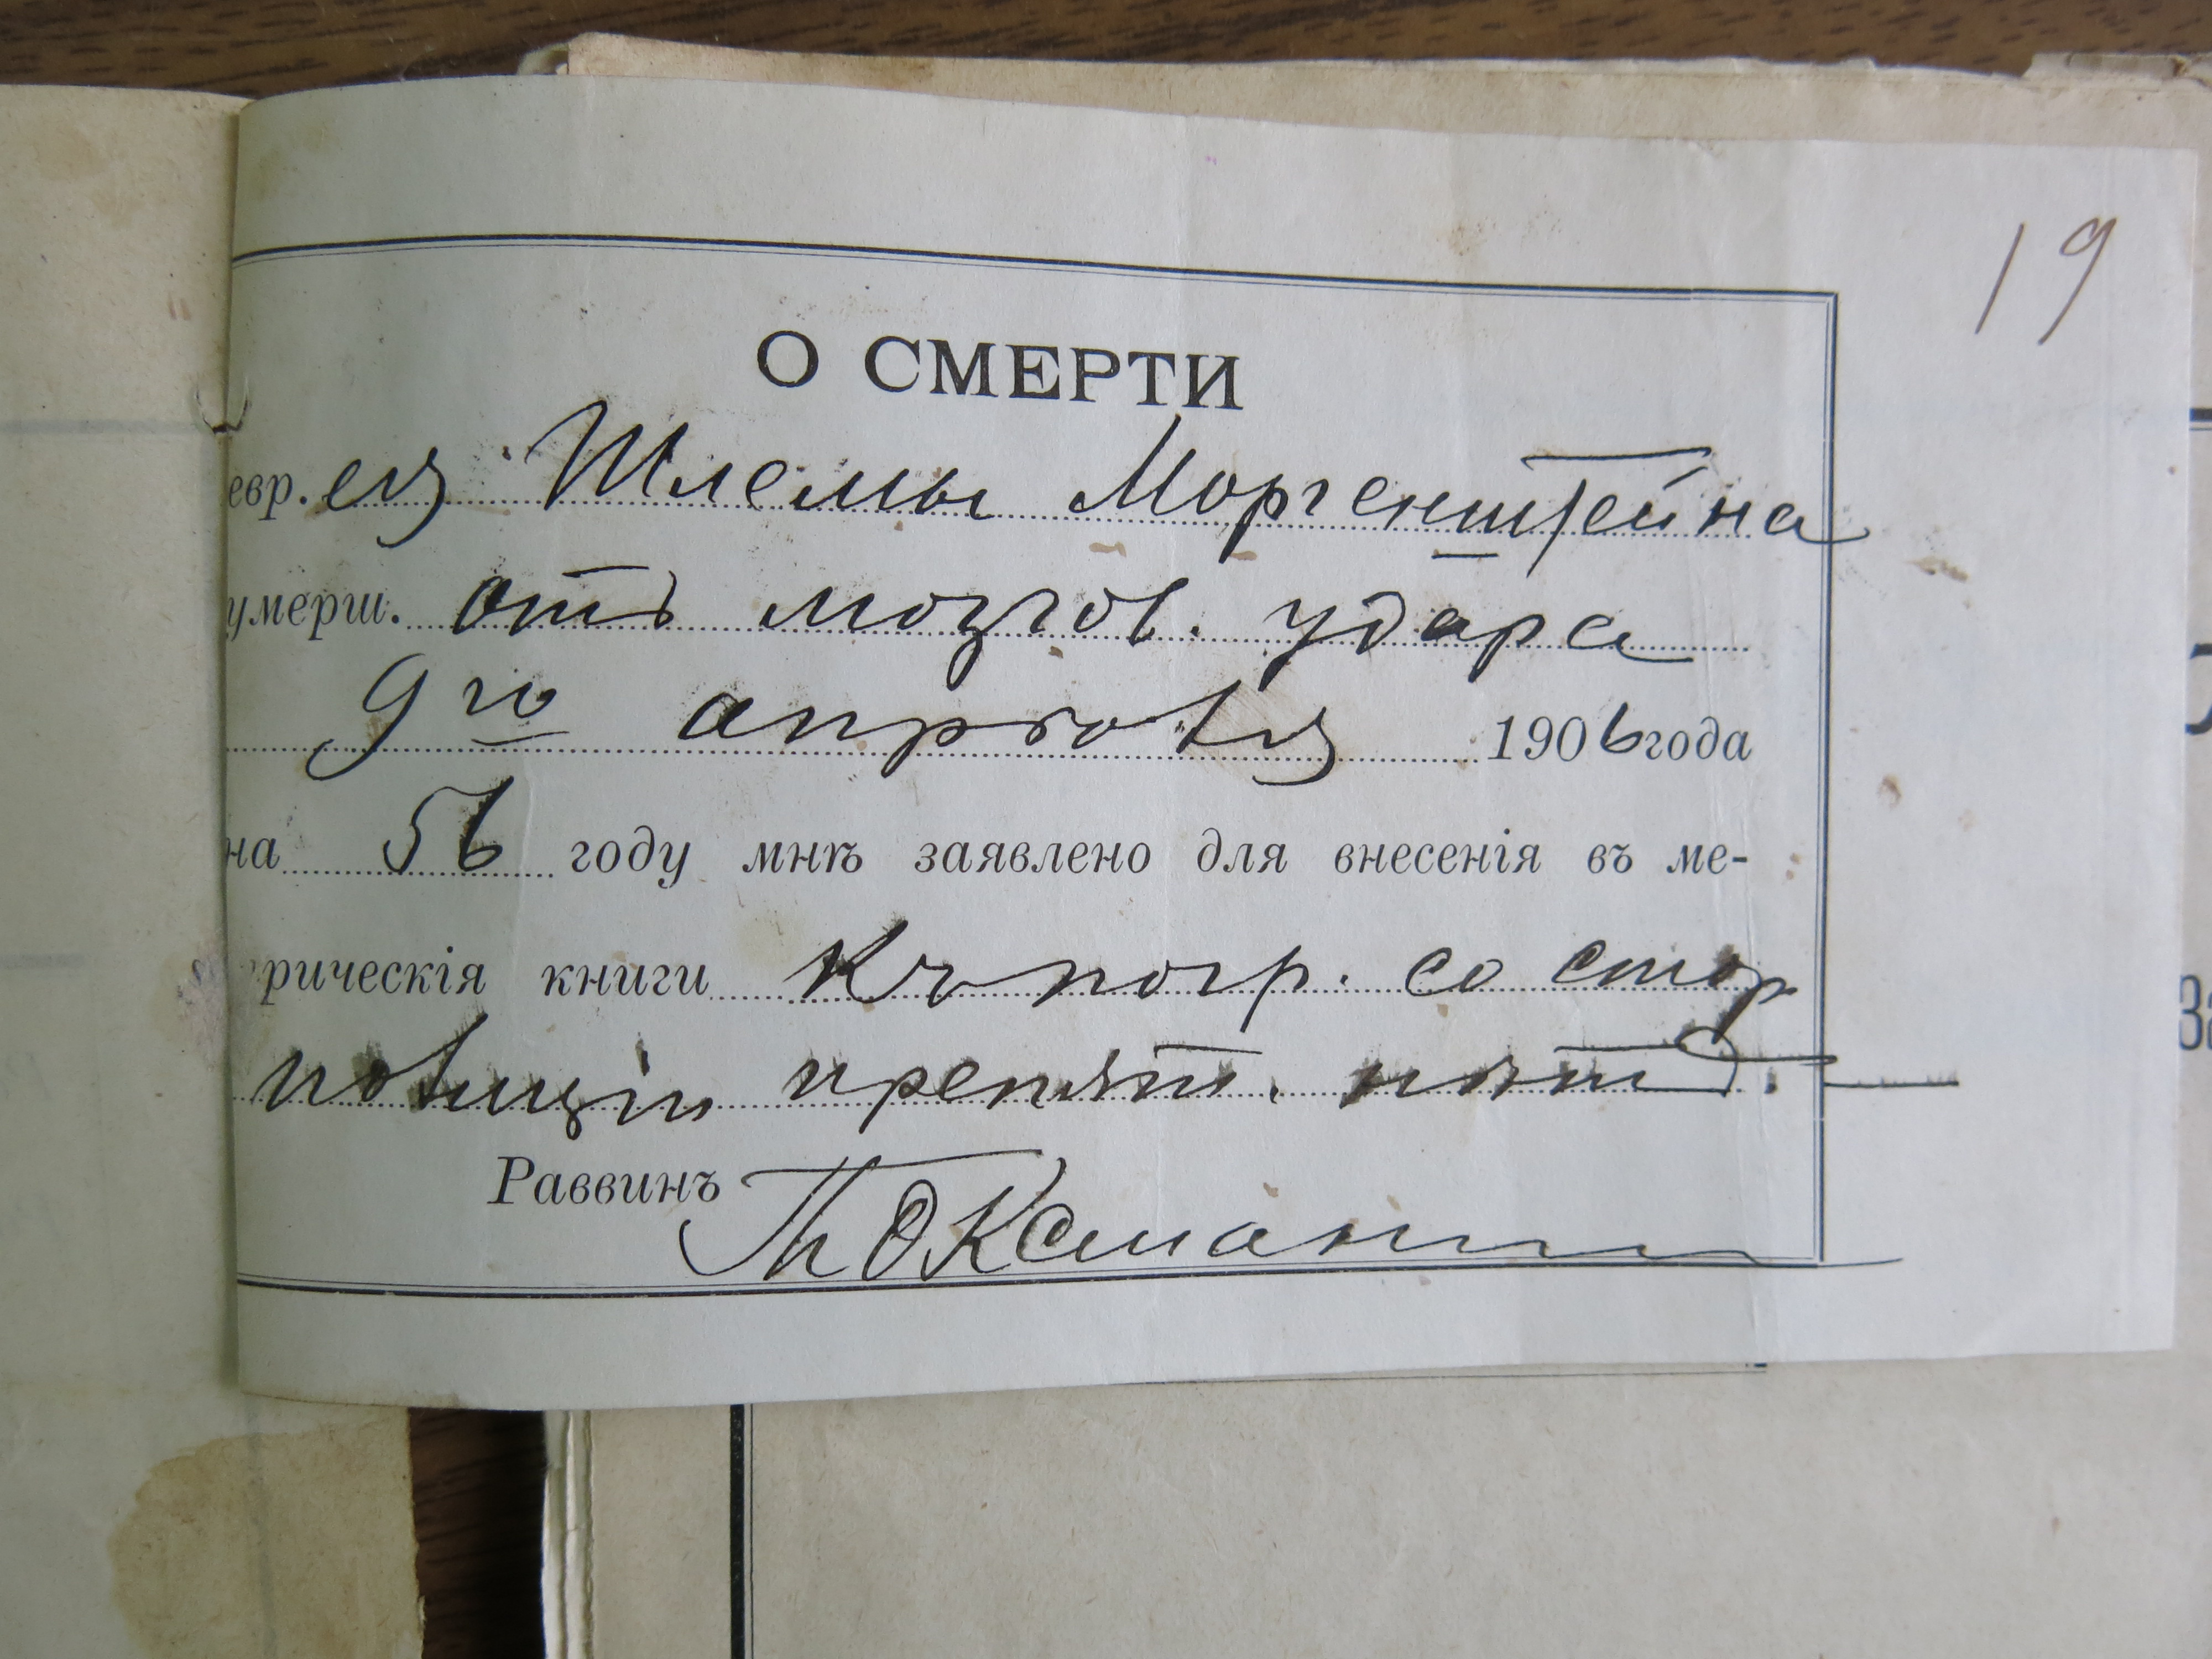 19
О СМЕРТИ
евр.ея Шлемы Моргенштейна
умерш. отъ мозгов. удара
9го апрѣля 1906 года
на 56 году мнѣ заявлено для внесенія въ ме-
трическія книги Къ погр. со стор
полиціи препят. нѣтъ.
Раввинъ Оксманъ